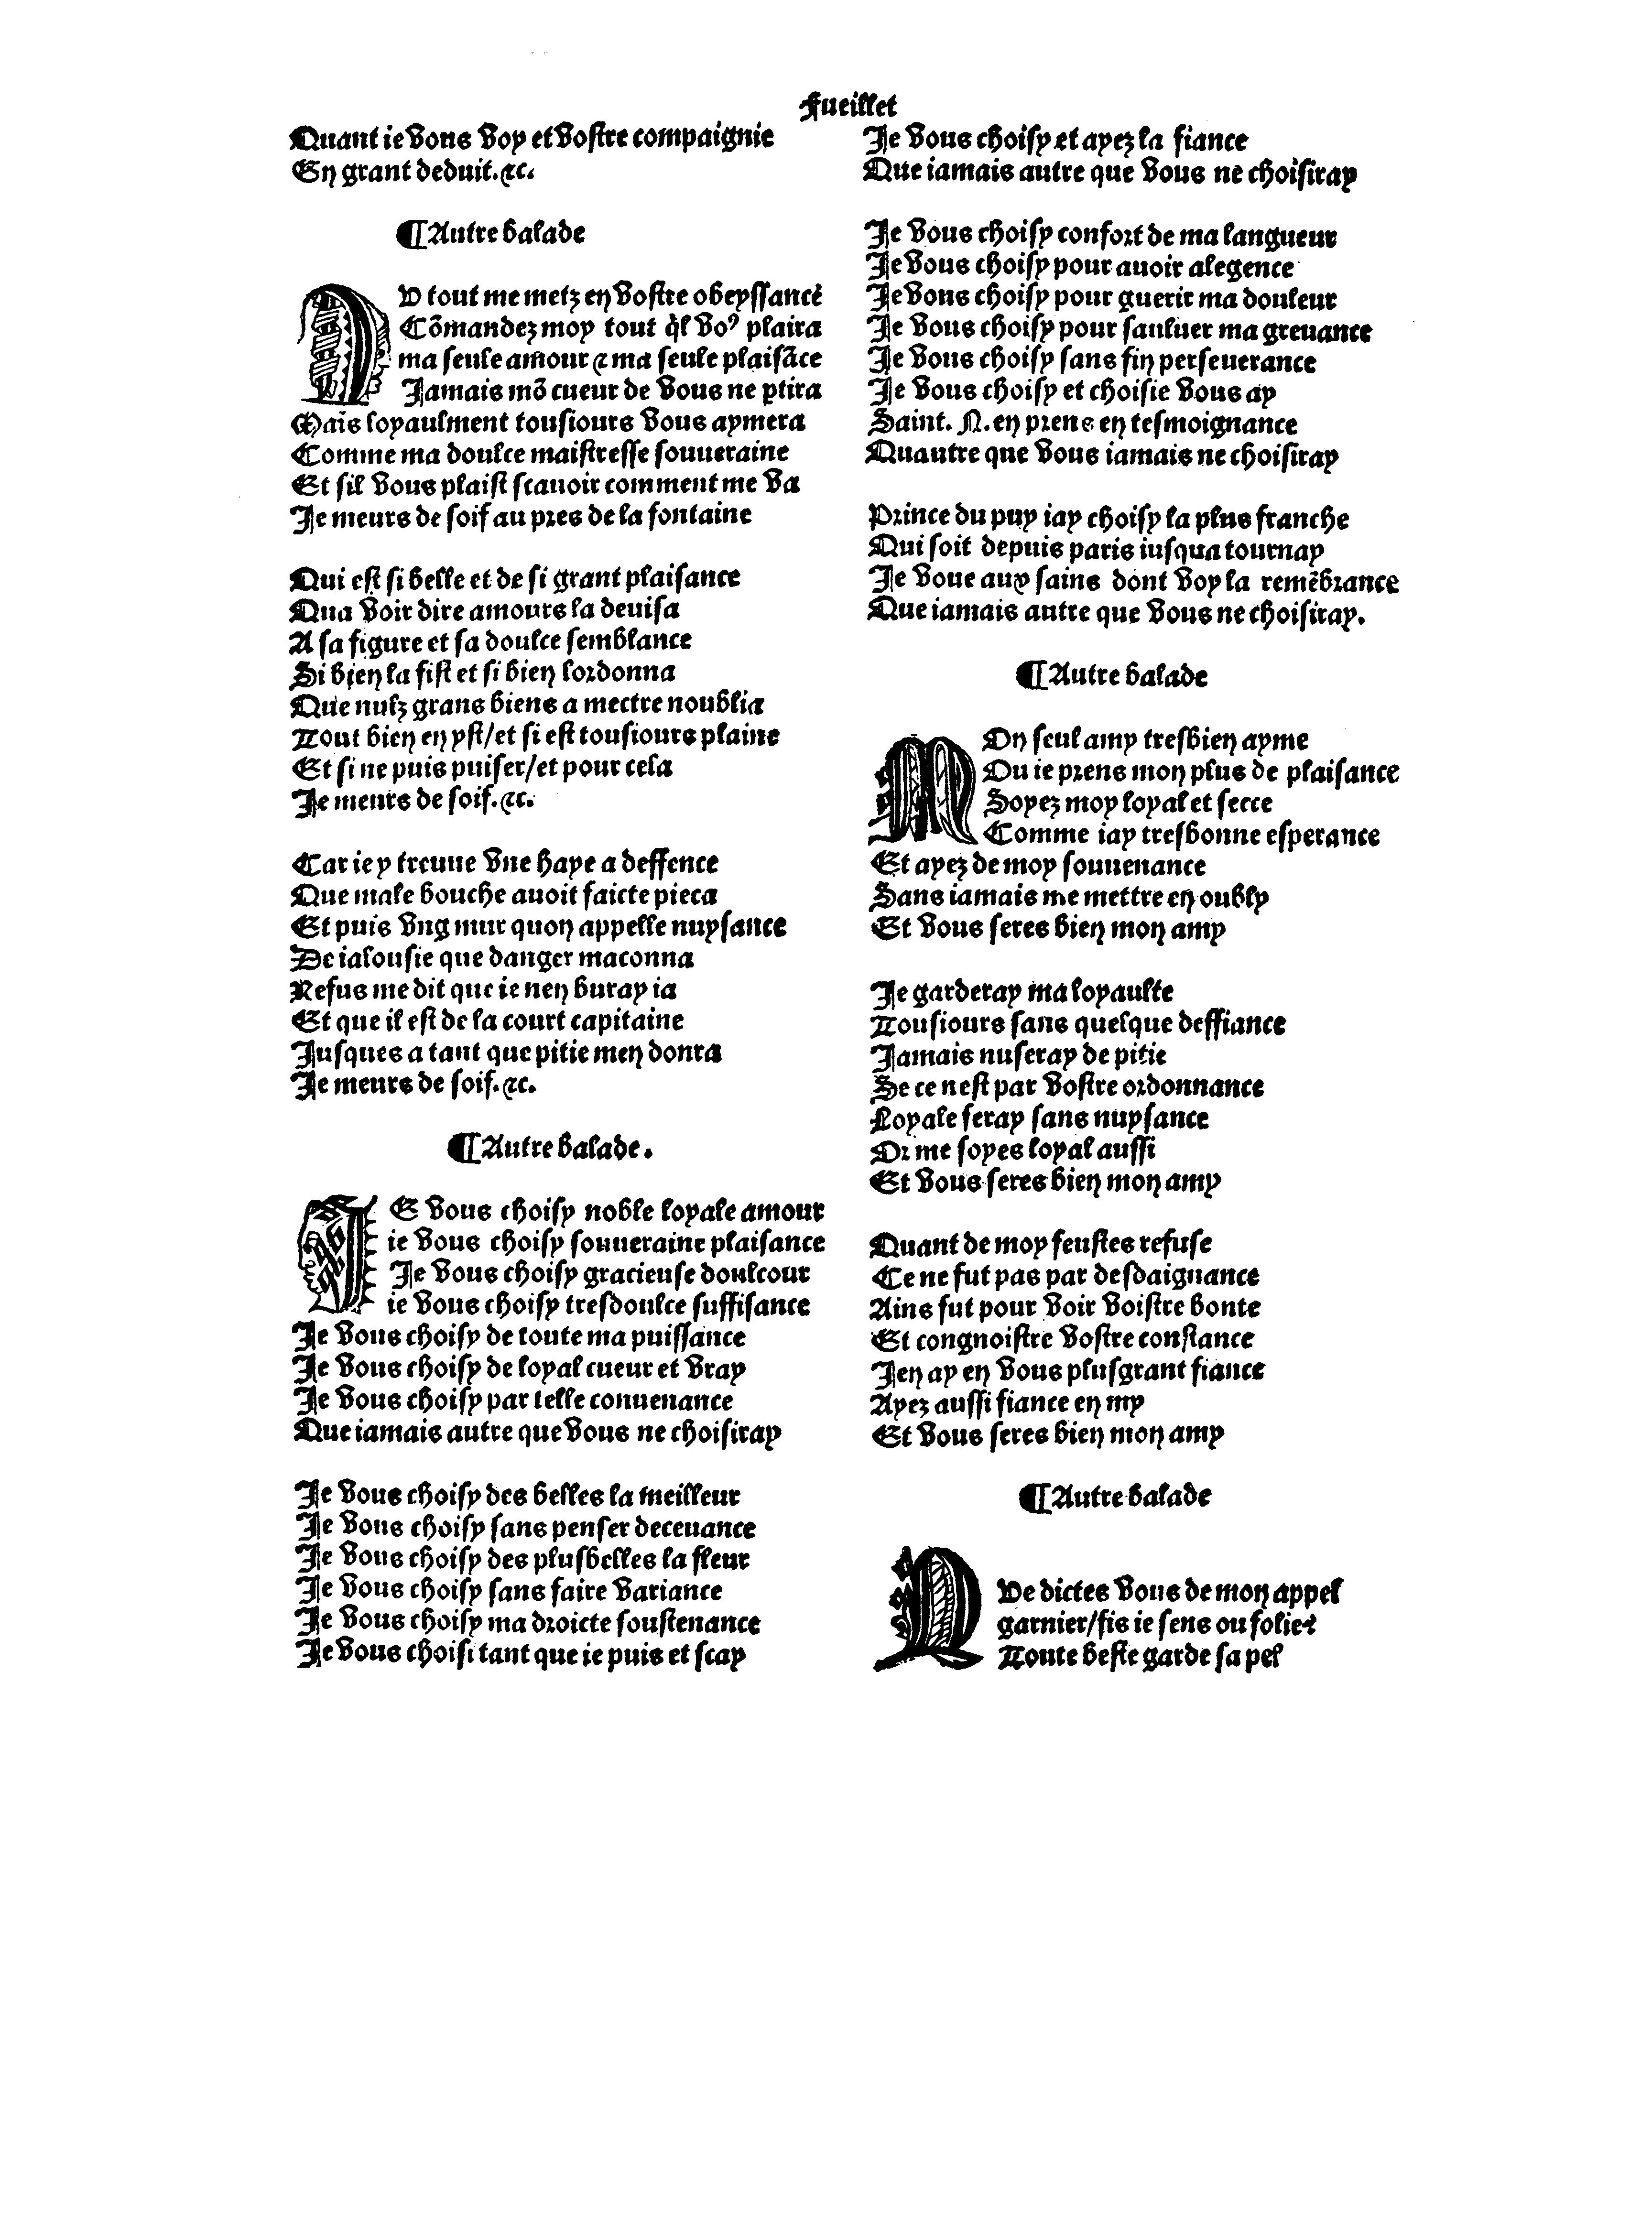 Fueillet
Quant ie vous voy et vostre compaignie
En grant deduit. ⁊c.
¶Autre balade
DV tout me metz en vostre obeyssance
Cõmandez moy tout q̃l voꝰ plaira
ma seule amour ⁊ ma seule plaisãce
Jamais mõ cueur de vous ne ꝑtira
Mais loyaulment tousiours vous aymera
Comme ma doulce maistresse souueraine
Et sil vous plaist scauoir comment me va
Je meurs de soif au pres de la fontaine
Qui est si belle et de si grant plaisance
Qua voir dire amours la deuisa
A sa figure et sa doulce semblance
Si bien la fist et si bien lordonna
Que nulz grans biens a mectre noublia
Tout bien en yst/et si est tousiours plaine
Et si ne puis puiser/et pour cela
Je meurs de soif. ⁊c.
Car ie y treuue vne haye a deffence
Que male bouche auoit faicte pieca
Et puis vng mur quon appelle nuysance
De ialousie que danger maconna
Refus me dit que ie nen buray ia
Et que il est de la court capitaine
Jusques a tant que pitie men donra
Je meurs de soif. ⁊c.
¶Autre balade.
JE vous choisy noble loyale amour
ie vous choisy souueraine plaisance
Je vous choisy gracieuse doulcour
ie vous choisy tresdoulce suffisance
Je vous choisy de toute ma puissance
Je vous choisy de loyal cueur et vray
Je vous choisy par telle conuenance
Que iamais autre que vous ne choisiray
Je vous choisy des belles la meilleur
Je vous choisy sans penser deceuance
Je vous choisy des plusbelles la fleur
Je vous choisy sans faire variance
Je vous choisy ma droicte soustenance
Je vous choisi tant que ie puis et scay
Je vous choisy et ayez la fiance
Que iamais autre que vous ne choisiray
Je vous choisy confort de ma langueur
Je vous choisy pour auoir alegence
Je vous choisy pour guerir ma douleur
Je vous choisy pour sauluer ma greuance
Je vous choisy sans fin perseuerance
Je vous choisy et choisie vous ay
Saint. N. en prens en tesmoignance
Quautre que vous iamais ne choisiray
Prince du puy iay choisy la plus franche
Qui soit depuis paris iusqua tournay
Je voue aux sains dont voy la remẽbrance
Que iamais autre que vous ne choisiray.
¶Autre balade
MOn seul amy tresbien ayme
Ou ie prens mon plus de plaisance
Soyez moy loyal et secre
Comme iay tresbonne esperance
Et ayez de moy souuenance
Sans iamais me mettre en oubly
Et vous seres bien mon amy
Je garderay ma loyaulte
Tousiours sans quelque deffiance
Jamais nuseray de pitie
Se ce nest par vostre ordonnance
Loyale seray sans nuysance
Or me soyes loyal aussi
Et vous seres bien mon amy
Quant de moy feustes refuse
Ce ne fut pas par desdaignance
Ains fut pour voir voistre bonte
Et congnoistre vostre constance
Jen ay en vous plusgrant fiance
Ayez aussi fiance en my
Et vous seres bien mon amy
¶Autre balade
QVe dictes vous de mon appel
garnier/fis ie sens ou folie?
Toute beste garde sa pel